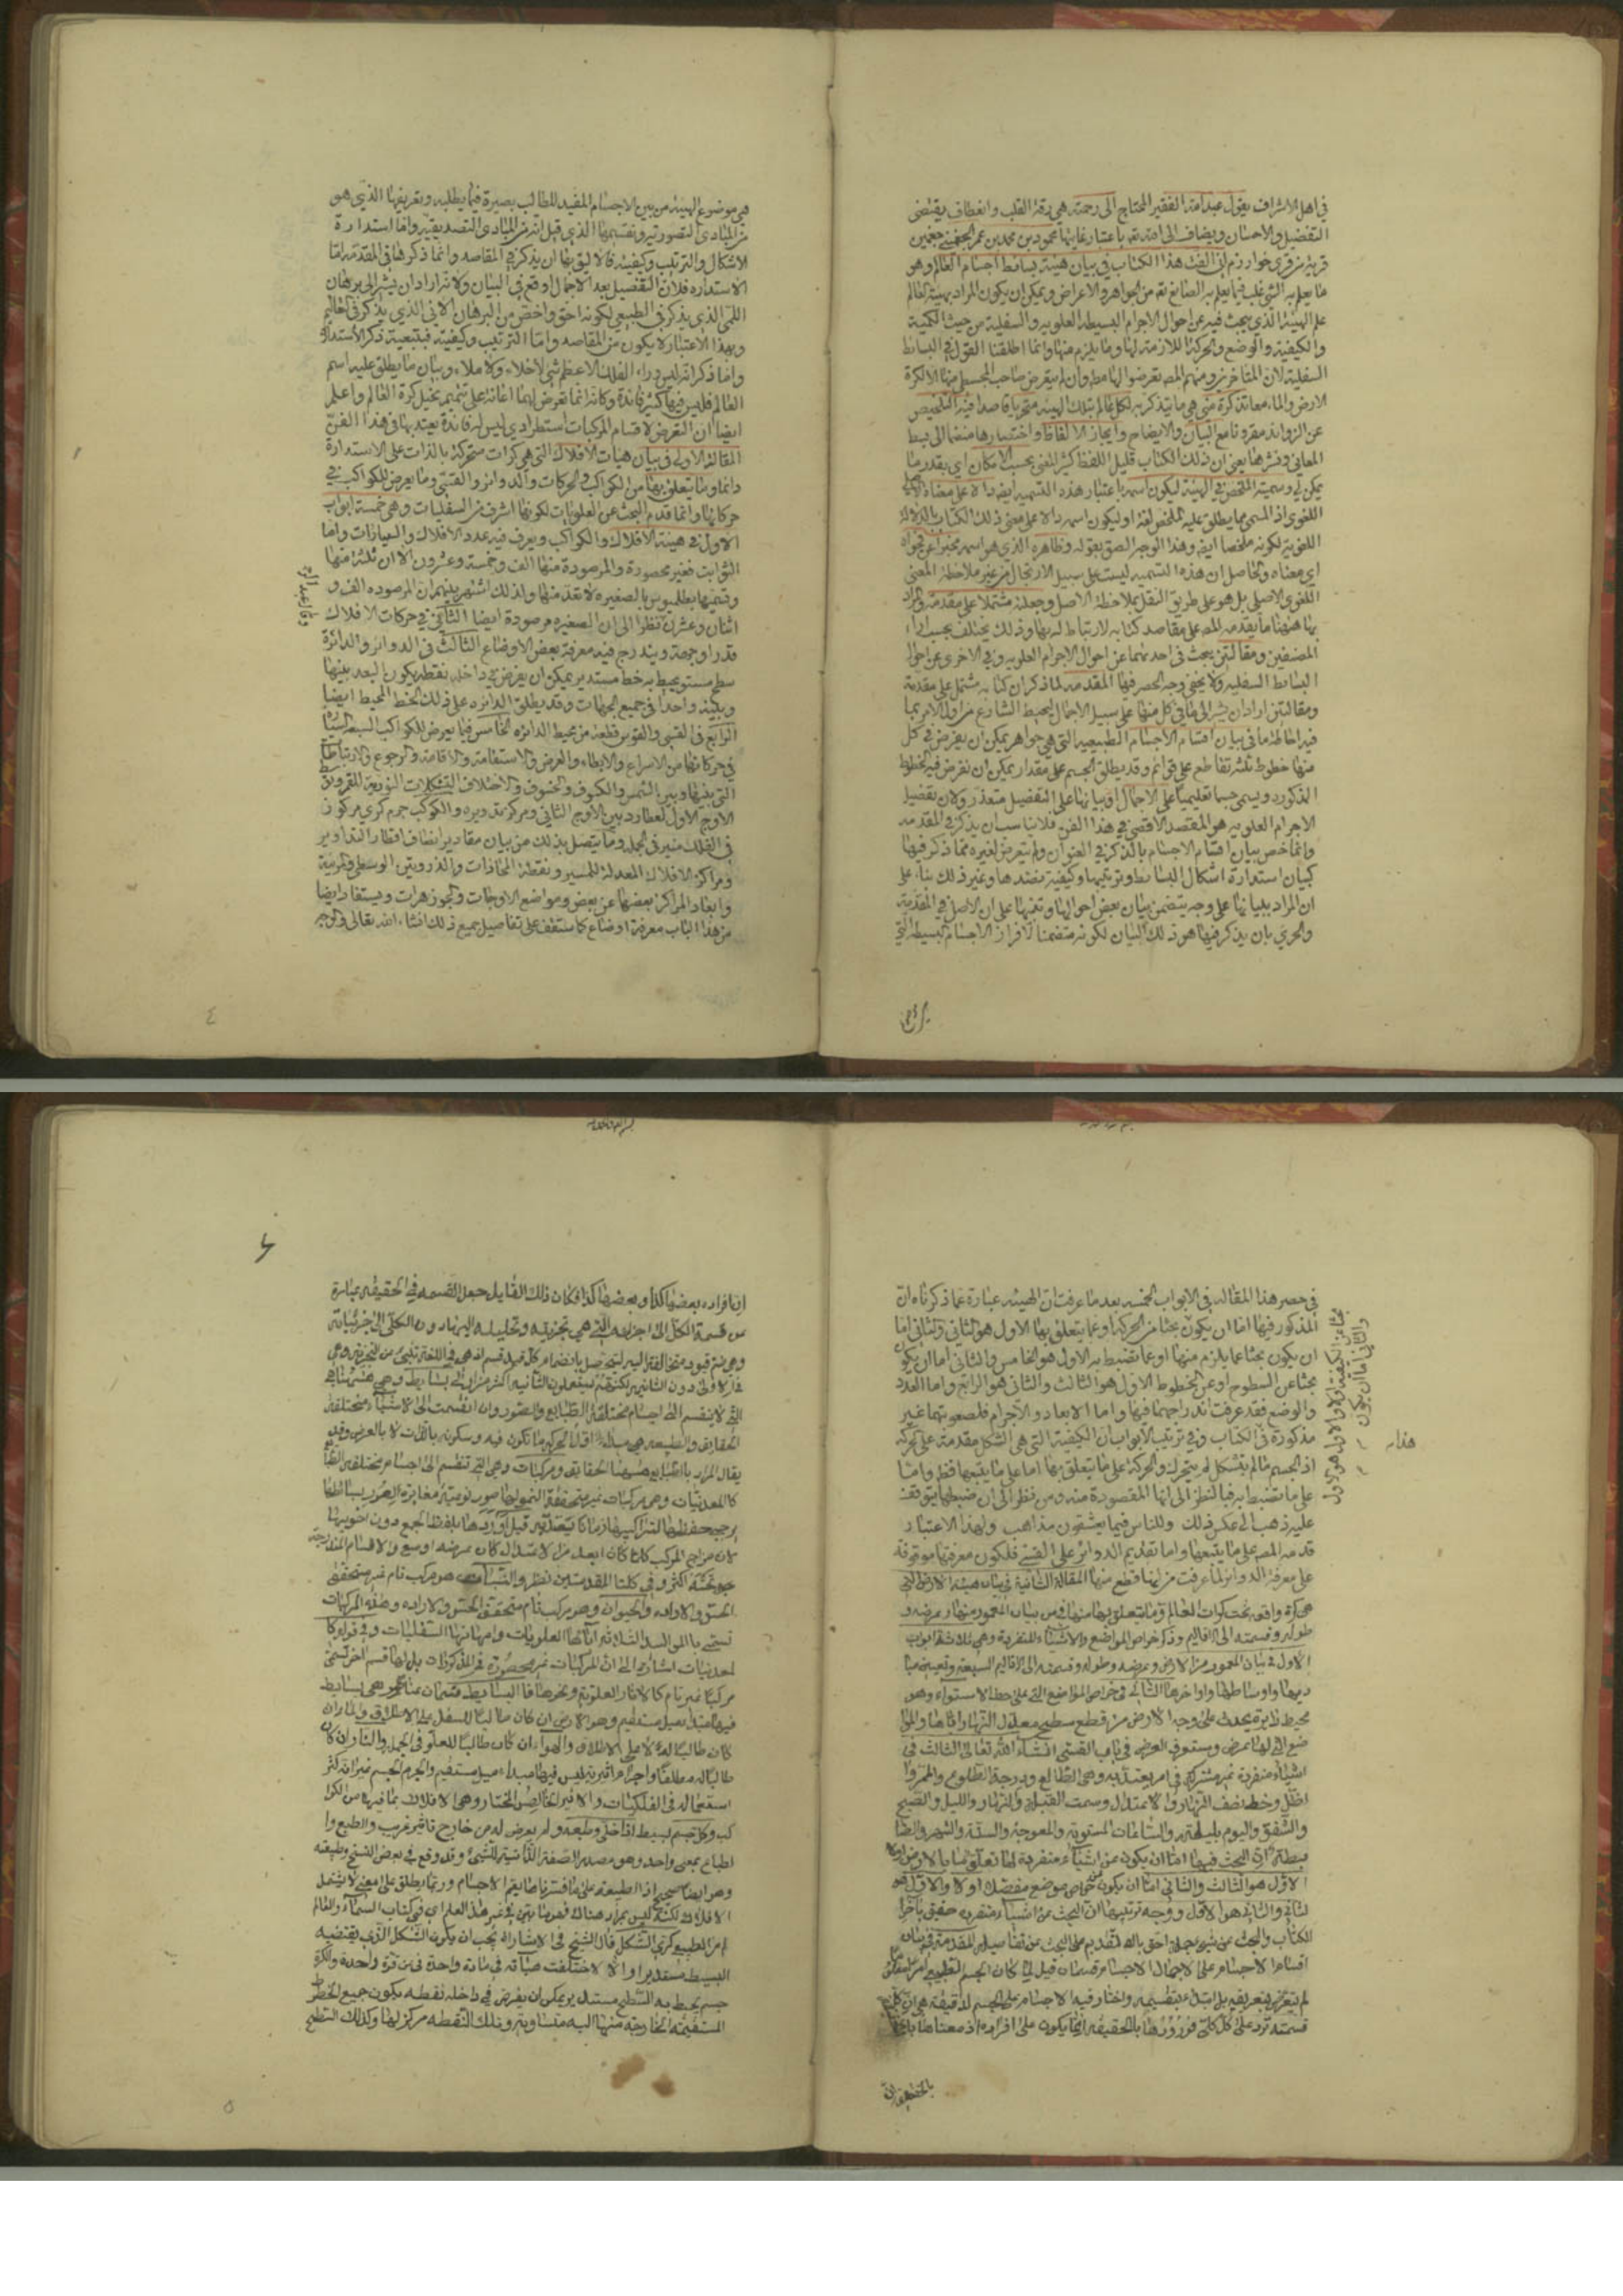 في اهل الاشراف يقول عبد الله الفقير المحتاج الى رحمته هي رقة القلب وانعطاف يقتضى
التفضيل والاحسان ويضاف الى الله تعه باعتبار غايتها محمود بن محمد بن عمر الجغمينى جغمين
قرية من قرى خوارزم انى الفت هذا الكتاب في بيان هيئة بسائط اجسام العالم وهو
ما يعلم به الشئ غلب فيما يعلم به الصانع تعه من الجواهر والاعراض ويمكن ان يكون المراد بهيئة العالم
علم الهيئة الذي يبحث فيه عن احوال الاجرام البسيطة العلوية والسفلية من حيث الكمية
والكيفية والوضع والحركة اللازمة لها وما يلزم منها وانما اطلقنا القول في البسائط
السفلية لان المتأخرين ومنهم المصه تعرضوا لها مطه وان لم يتعرض صاحب المجسطي منها الا لكرة
الارض والماء معا تذكرة منى هي ما يتذكر به لكل عالم بتلك الهيئة متحريا قاصدا فيه التلخيص
عن الزوائد مقرونا مع البيان والايضاح وايجاز الالفاظ واختصارها منضما الى بسط
المعاني ونشرها يعنى ان ذلك الكتاب قليل اللفظ كثير المعنى بحسب الامكان اي بقدر ما
يمكن لي وسميته الملخص في الهيئة ليكون اسمه باعتبار هذه التسمية ايضه دالا على معناه
اللغوى اذ المسمى مما يطلق عليه الملخص لغة او ليكون اسمه دالا على معنى ذلك الكتاب بالدلالة
اللغوية لكونه ملخصا ايضه وهذا الوجه الصق بقوله وظاهره الذي هو اسمه مخبرا عن فحواه
اي معناه والحاصل ان هذه التسمية ليست على سبيل الارتجال من غير ملاحظة المعنى
اللغوى الاصلى بل هو على طريق النقل بملاحظة الاصل وجعلته مشتملا على مقدمة والمراد
بها ههنا ما يقدمه المصه على مقاصد كتابه لارتباط له بها وذلك يختلف بحسب اراء
المصنفين ومقالتين يبحث في احديهما عن احوال الاجرام العلوية وفي الاخرى عن احوال
البسائط السفلية ولا يخفى وجه الحصر فيها المقدمة لما ذكر ان كتابه مشتمل على مقدمة
ومقالتين اراد ان يشير الى ما في كل منها على سبيل الاجمال ليحيط الشارع من اول الامر بما
فيه احاطة ما في بيان اقسام الاجسام الطبيعية التى هي جواهر يمكن ان يفرض في كل
منها خطوط ثلثة تقاطع على قوائم وقد يطلق الجسم على مقدار يمكن ان تفرض فيه الخطوط
المذكورة ويسمى جسما تعليميا على الاجمال اذ بيانها على التفصيل متعذر ولان تفصيل
الاجرام العلوية هو المقصد الاقصى في هذا الفن فلا يناسب ان يذكر في المقدمة
وانما خص بيان اقسام الاجسام بالذكر في العنوان ولم يتعرض لغيره مما ذكر فيها
كبيان استدارة اشكال البسائط وترتيبها وكيفية نضدها وغير ذلك بناء على
ان المراد بيانها على وجه يتضمن بيان بعض احوالها وتنبيها على ان الاصل في المقدمة
والحري بان يذكر فيها هو ذلك البيان لكونه متضمنا لافراز الاجسام البسيطة التى
هي موضوع الهيئة من بين الاجسام المفيد للطالب بصيرة فيما يطلبه وتعريفها الذي هو
من المبادى التصورية وتقسيمها الذي قيل انه من المبادى التصديقية واما استدارة
الاشكال والترتيب وكيفيته فالاليق بها ان يذكر في المقاصد وانما ذكرها في المقدمة اما
الاستدارة فلان التفصيل بعد الاجمال اوقع في البيان ولانه اراد ان يشير الى برهان
اللمى الذي يذكر في الطبيعي لكونه احق واخص من البرهان الانى الذي يذكر في
وبهذا الاعتبار لا يكون من المقاصد واما الترتيب وكيفيته فبتبعية ذكر الاستدارة
وما ذكر انه ليس وراء الفلك الاعظم شئ لا خلاء ولا ملاء وبيان ما يطلق عليه اسم
العالم فليس فيها كثير فائدة وكانه انما تعرض لهما اعانة على تتميم تخيل كرة العالم واعلم
ايضا ان التعرض لاقسام المركبات استطرادي ليس له فائدة يعتد بها في هذا الفن
المقالة الاولى في بيان هيأت الافلاك التى هي كرات متحركة بالذات على الاستدارة
دائما وما يتعلق بها من الكواكب والحركات والدوائر والقسي وما يعرض للكواكب في
حركاتها وانما قدم البحث عن العلويات لكونها اشرف من السفليات وهي خمسة ابواب
الاول في هيئة الافلاك والكواكب ويعرف فيه عدد الافلاك والسيارات واما
الثوابت فغير محصورة والمرصودة منها الف وخمسة وعشرون الا ان ثلثة منها
وسميها بطلميوس بالصغيرة لا تعد منها ولذلك اشتهر بينهم ان المرصودة الف و
اثنان وعشرون نظرا الى ان الصغيرة مرصودة ايضا الثاني في حركات الافلاك
قدرا وجهة ويندرج فيه معرفة بعض الاوضاع الثالث في الدوائر والدائرة
سطح مستو يحيط به خط مستدير يمكن ان يفرض في داخله نقطة يكون البعد بينها
وبينه واحدا في جميع الجهات وقد يطلق الدائرة على ذلك الخط المحيط ايضا
الرابع في القسي والقوس قطعة من محيط الدائرة الخامس فيما يعرض للكواكب السبعة السيارة
في حركاتها من الاسراع والابطاء والعرض والاستقامة والاقامة والرجوع والارتباطات
التى بينها وبين الشمس والكسوف والخسوف والاختلاف التشكلات النورية للقمر
الاوج الاول لعطارد بين الاوج الثاني ومركز تدويره والكوكب جرم كري مركوز
في الفلك منير في الجملة وما يتصل بذلك من بيان مقادير انصاف اقطار التداوير
ومراكز الافلاك المعدلة للمسير ونقطة المحاذات والذروتين الوسطى والمرئية
وابعاد المراكز بعضها عن بعض ومواضع الاوجات والجوزهرات ويستفاد ايضا
من هذا الباب معرفة اوضاع كما ستقف على تفاصيل جميع ذلك انشاء الله تعالى والوجه
٤
في حصر هذا المقالة في الابواب الخمسة بعد ما عرفت ان الهيئة عبارة عما ذكرناه ان
المذكور فيها اما ان يكون بحثا من الحركة او عما يتعلق بها الاول هو الثاني والثاني اما
ان يكون بحثا عما يلزم منها او عما تضبط به الاول هو الخامس والثاني اما ان يكون
بحثا عن السطوح او عن الخطوط الاول هو الثالث والثاني هو الرابع واما العدد
والوضع فقد عرفت اندراجهما فيها واما الابعاد والاجرام فلصعوبتهما غير
مذكورة في الكتاب وفي ترتيب الابواب ان الكيفية التى هي الشكل مقدمة على الحركة
اذ الجسم ما لم يتشكل لم يتحرك والحركة على ما يتعلق بها اما على ما يتبعها فظ واما
على ما تضبط به فبالنظر الى انها المقصودة منه ومن نظر الى ان ضبطها يتوقف
عليه ذهب الى عكس ذلك وللناس فيما يعشقون مذاهب ولهذا الاعتبار
قدمه المصه على ما يتبعها واما تقديم الدوائر على القسي فلكون معرفتها موقوفة
على معرفة الدوائر لما عرفت من انها قطع منها المقالة الثانية في بيان هيئة الارض التى
هي كرة واقعة تحت كرات العالم وما يتعلق بها منها في بيان المعمور منها وعرضه و
طوله وقسمته الى الاقاليم وذكر خواص المواضع والاشياء المنفردة وهي ثلاثة ابواب
الاول في بيان المعمور من الارض وعرضه وطوله وقسمته الى الاقاليم السبعة وتعيين مبا
ديها واوساطها واواخرها الثاني في خواص المواضع التى على خط الاستواء وهو
محيط دائرة يحدث على وجه الارض من قطع سطح معدل النهار اياها والموا
ضع التى لها عرض وستعرف العرض في باب القسي انشاء الله تعالى الثالث في
اشياء منفردة غير مشتركة في امر يعتد به وهي الطالع ودرجة الطلوع والممر وا
لظل وخط نصف النهار والاعتدال وسمت القبلة والنهار والليل والصبح
والشفق واليوم بليلته والساعات المستوية والمعوجة والسنة والشهر
الاول هو الثالث والثاني اما ان يكون
لثاني والثاني هو الاول ووجه ترتيبها ان البحث عن اشياء منفردة حقيق باخر
الكتاب والبحث عن شئ بجملة احق بالتقديم على البحث عن تفاصيله المقدمة في بيان
اقسام الاجسام على الاجمال الاجسام قسمان قيل لما كان الجسم الطبيعي
لم يتعرض لتعريفه بل ابتداء بتقسيمه واختار فيه الاجسام على الجسم لدقيقة هي ان كل
قسمته ترد على كل كلي فورودها بالحقيقة انما يكون على افراده اذ معناها
بالحقيقة ان
هذا به
ان افراده بعضها كذا وبعضها كذا فكان ذلك القايل جعل القسمة في الحقيقة عبارة
من قسمة الكل الى اجزائه التى هي تجزيه وتحليله اليها دون الكلي الى جزئياته
التى لا ينقسم الى اجسام مختلفة الطبايع والصور وان انقسمت الى الاشياء مختلفة
الحقايق والطبيعة هي مبدأ اول لحركة ما تكون فيه وسكونه بالذات لا بالعرض وقد
يقال المراد بالطبايع ههنا الحقايق ومركبات وهي التى تنقسم الى اجسام مختلفة الطبايع
كالمعدنيات وهي مركبات غير متحققة النمو لها صور نوعية مغايرة لصور بسائطها
لان مزاج المركب كلما كان ابعد من الاعتدال كان عرضه اوسع والاقسام المندرجة
تحته اكثر وفي كلتا المقدمتين نظر والنباتات هو مركب تام غير متحقق
الحس والارادة والحيوان وهو مركب تام متحقق الحس والارادة وهذه المركبات
تسمى بالمواليد الثلاثة اباؤها العلويات وامهاتها السفليات وفي قوله كا
لمعدنيات اشارة الى ان المركبات غير محصورة في المذكورات بل لها قسم اخر تسمى
مركبا غير تام كالاثار العلوية ونحوها فالبسايط قسمان عناصر وهي بسايط
فيها مبدأ ميل مستقيم وهو الارض ان كان طالبا للسفل على الاطلاق والماء ان
كان طالبا له لا على الاطلاق والهواء ان كان طالبا للعلو في الجملة والنار ان كان
طالبا له مطلقا واجرام اثيرية ليس فيها مبداء ميل مستقيم والجرم الجسم غير انه كثر
استعماله في الفلكيات والاثير الخالص المختار وهي الافلاك بما فيها من الكوا
كب وكل جسم بسيط اذا خلى وطبعه ولم يعرض له من خارج تاثير غريب والطبع وا
لطباع بمعنى واحد وهو مصدر الصفة الذاتية للشئ وقد وقع في بعض النسخ وطبيعته
وهو ايضا صحيح اذ الطبيعة على ما فسرناها تعم الاجسام وربما يطلق على معنى لا يشمل
الافلاك لكنه ليس بمراد هناك فهو ما يتبين في غير هذا العلم اي في كتاب السماء والعالم
من الطبيعي كري الشكل قال الشيخ في الاشارات يجب ان يكون الشكل الذي يقتضيه
البسيط مستديرا والا لاختلفت هيأته في مادة واحدة عن قوة واحدة والكرة
جسم يحيط به السطح مستدير يمكن ان يفرض في داخله نقطة يكون جميع الخطوط
المستقيمة الخارجة منها اليه متساوية وتلك النقطة مركز لها وكذلك السطح
٥